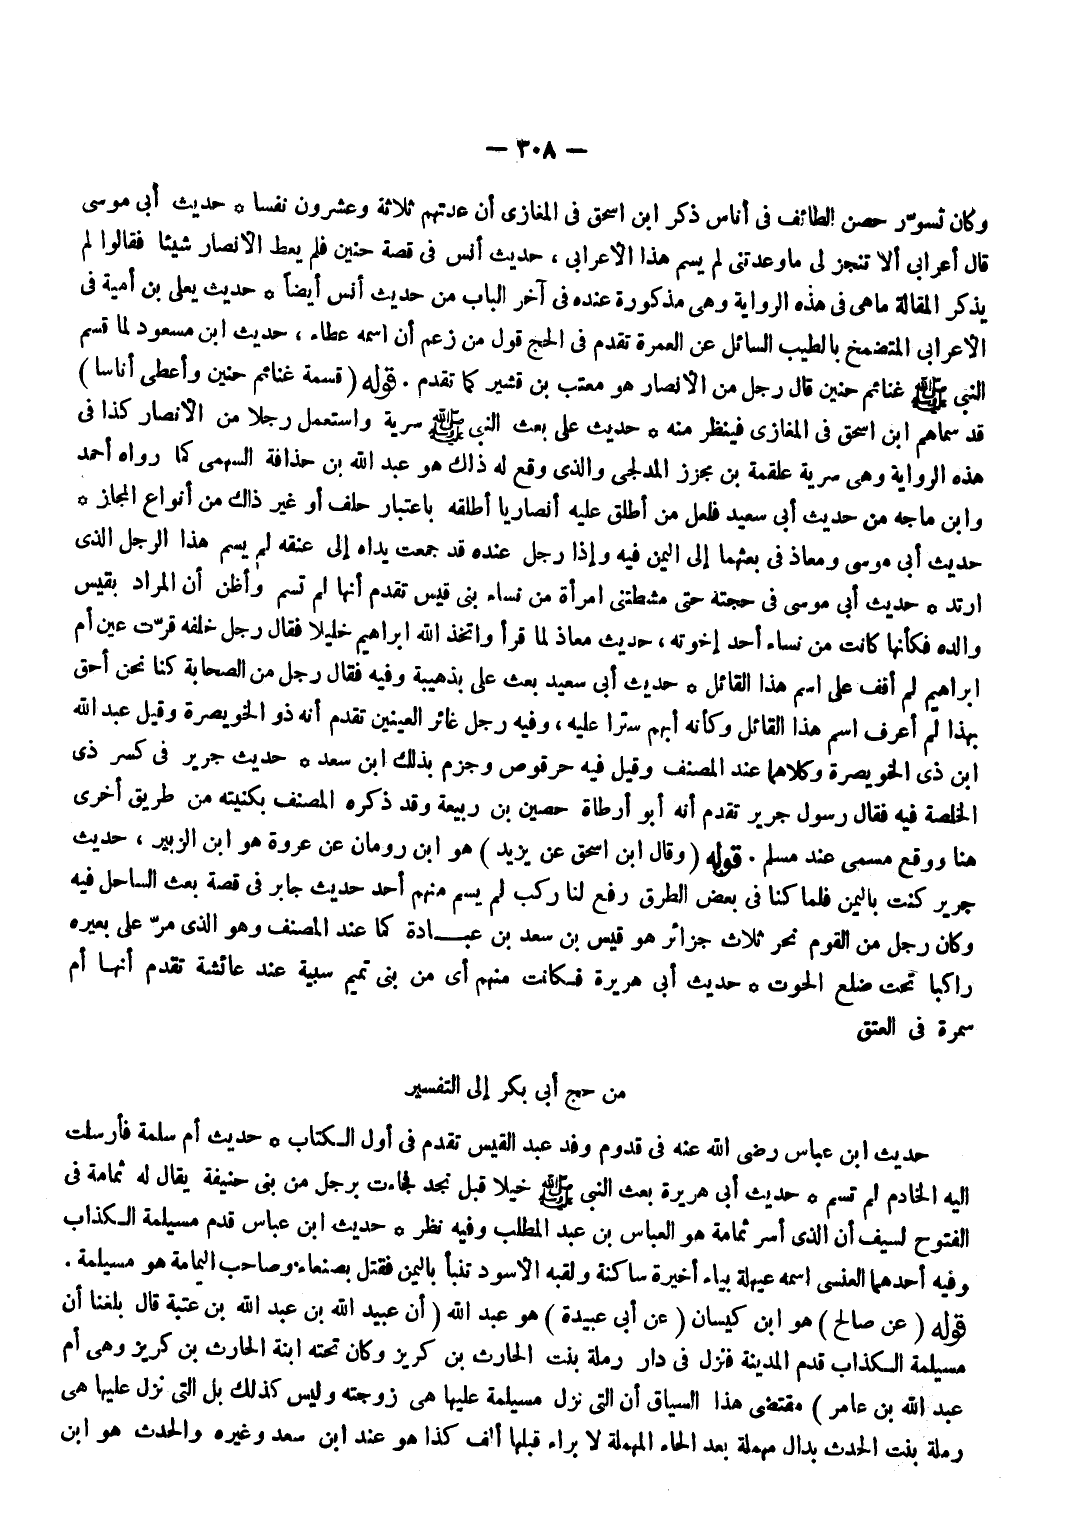 — ٣٠٨ —
وكان تسوّر حصن الطائف فى أناس ذكر ابن اسحق فى المغازى أن عدتهم ثلاثة وعشرون نفسا * حديث أبى موسى
قال أعرابى ألا تنجز لى ماوعدتنى لم يسم هذا الاعرابى ، حديث أنس فى قصة حنين فلم يعط الانصار شيئا فقالوا لم
يذكر المقالة ماهى فى هذه الرواية وهى مذكورة عنده فى آخر الباب من حديث أنس أيضاً * حديث يعلى بن أمية فى
الاعرابى المتضمخ بالطيب السائل عن العمرة تقدم فى الحج قول من زعم أن اسمه عطاء ، حديث ابن مسعود لما قسم
النبى ﷺ غنائم حنين قال رجل من الانصار هو معتب بن قشير كما تقدم . قوله ( قسمة غنائم حنين وأعطى أناسا )
قد سماهم ابن اسحق فى المغازى فينظر منه * حديث على بعث النبى ﷺ سرية واستعمل رجلا من الانصار كذا فى
هذه الرواية وهى سرية علقمة بن مجزز المدلجى والذى وقع له ذاك هو عبد الله بن حذافة السهمى كما رواه أحمد
وابن ماجه من حديث أبى سعيد فلعل من أطلق عليه أنصاريا أطلقه باعتبار حلف أو غير ذاك من أنواع المجاز *
حديث أبى موسى ومعاذ فى بعثهما إلى اليمن فيه وإذا رجل عنده قد جمعت يداه إلى عنقه لم يسم هذا الرجل الذى
ارتد * حديث أبى موسى فى حجته حتى مشطتنى امرأة من نساء بنى قيس تقدم أنها لم تسم وأظن أن المراد بقيس
والده فكأنها كانت من نساء أحد إخوته ، حديث معاذ لما قرأ واتخذ الله ابراهيم خليلا فقال رجل خلفه قرّت عين أم
ابراهيم لم أقف على اسم هذا القائل * حديث أبى سعيد بعث على بذهيبة وفيه فقال رجل من الصحابة كنا نحن أحق
بهذا لم أعرف اسم هذا القائل وكأنه أبهم سترا عليه ، وفيه رجل غائر العينين تقدم أنه ذو الخويصرة وقيل عبد الله
ابن ذى الخويصرة وكلاهما عند المصنف وقيل فيه حرقوص وجزم بذلك ابن سعد * حديث جرير فى كسر ذى
الخلصة فيه فقال رسول جرير تقدم أنه أبو أرطاة حصين بن ربيعة وقد ذكره المصنف بكنيته من طريق أخرى
هنا ووقع مسمى عند مسلم . قوله ( وقال ابن اسحق عن يزيد ) هو ابن رومان عن عروة هو ابن الزبير ، حديث
جرير كنت باليمن فلما كنا فى بعض الطرق رفع لنا ركب لم يسم منهم أحد حديث جابر فى قصة بعث الساحل فيه
وكان رجل من القوم نحر ثلاث جزائر هو قيس بن سعد بن عبـادة كما عند المصنف وهو الذى مرّ على بعيره
راكبا تحت ضلع الحوت * حديث أبى هريرة فـكانت منهم أى من بنى تميم سبية عند عائشة تقدم أنهـا أم
سمرة فى العتق
من حج أبى بكر إلى التفسير
حديث ابن عباس رضى الله عنه فى قدوم وفد عبد القيس تقدم فى أول الـكتاب * حديث أم سلمة فأرسلت
اليه الخادم لم تسم * حديث أبى هريرة بعث النبى ﷺ خيلا قبل نجد فجاءت برجل من بنى حنيفة يقال له ثمامة فى
الفتوح لسيف أن الذى أسر ثمامة هو العباس بن عبد المطلب وفيه نظر * حديث ابن عباس قدم مسيلمة الـكذاب
وفيه أحدهما العنسى اسمه عيهلة بياء أخيرة ساكنة ولقبه الأسود تنبأ باليمن فقتل بصنعاء وصاحب اليمامة هو مسيلمة .
قوله ( عن صالح ) هو ابن كيسان ( عن أبى عبيدة ) هو عبد الله ( أن عبيد الله بن عبد الله بن عتبة قال بلغنا أن
مسيلمة الـكذاب قدم المدينة فنزل فى دار رملة بنت الحارث بن كريز وكان تحته ابنة الحارث بن كريز وهى أم
عبد الله بن عامر ) مقتضى هذا السياق أن التى نزل مسيلمة عليها هى زوجته وليس كذلك بل التى نزل عليها هى
رملة بنت الحدث بدال مهملة بعد الحاء المهملة لا براء قبلها ألف كذا هو عند ابن سعد وغيره والحدث هو ابن